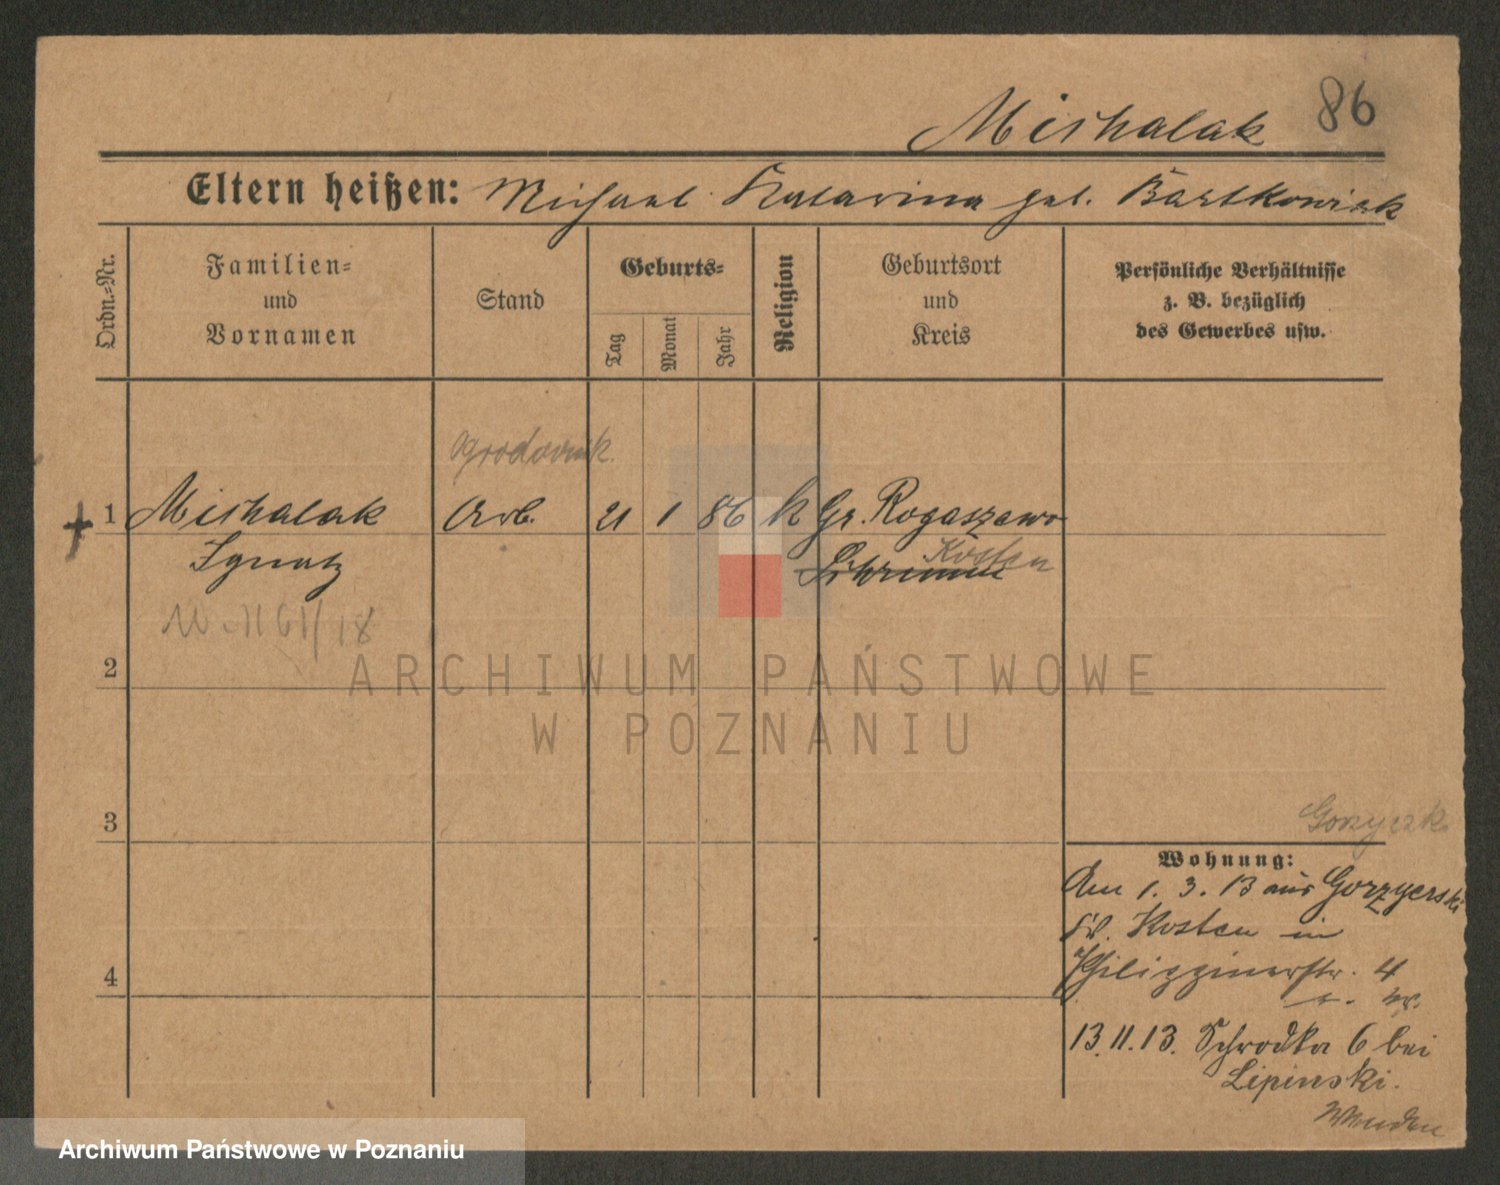 Michalak 86
Eltern heißen: Michael Katarina geb. Bartkowiak
Ordn.-Nr.
Familien-
und
Vornamen
Stand
Geburts-
Tag
Monat
Jahr
Religion
Geburtsort
und
Kreis
Persönliche Verhältnisse
z. B. bezüglich
des Gewerbes usw.
ogrodownik
1 Michalak Arb. 21 1 86 k Gr. Rogaszewo
Ignatz Schrimm Kosten
61/18
2
ARCHIWUM PAŃSTWOWE
W POZNANIU
3
Wohnung:
Am 1. 3. 13 aus Gorzyerski
Kr. Kosten in
Philippinerstr. 4
4
13.11.13. Schrodka 6 bei
Lipinski.
Wenden
Archiwum Państwowe w Poznaniu